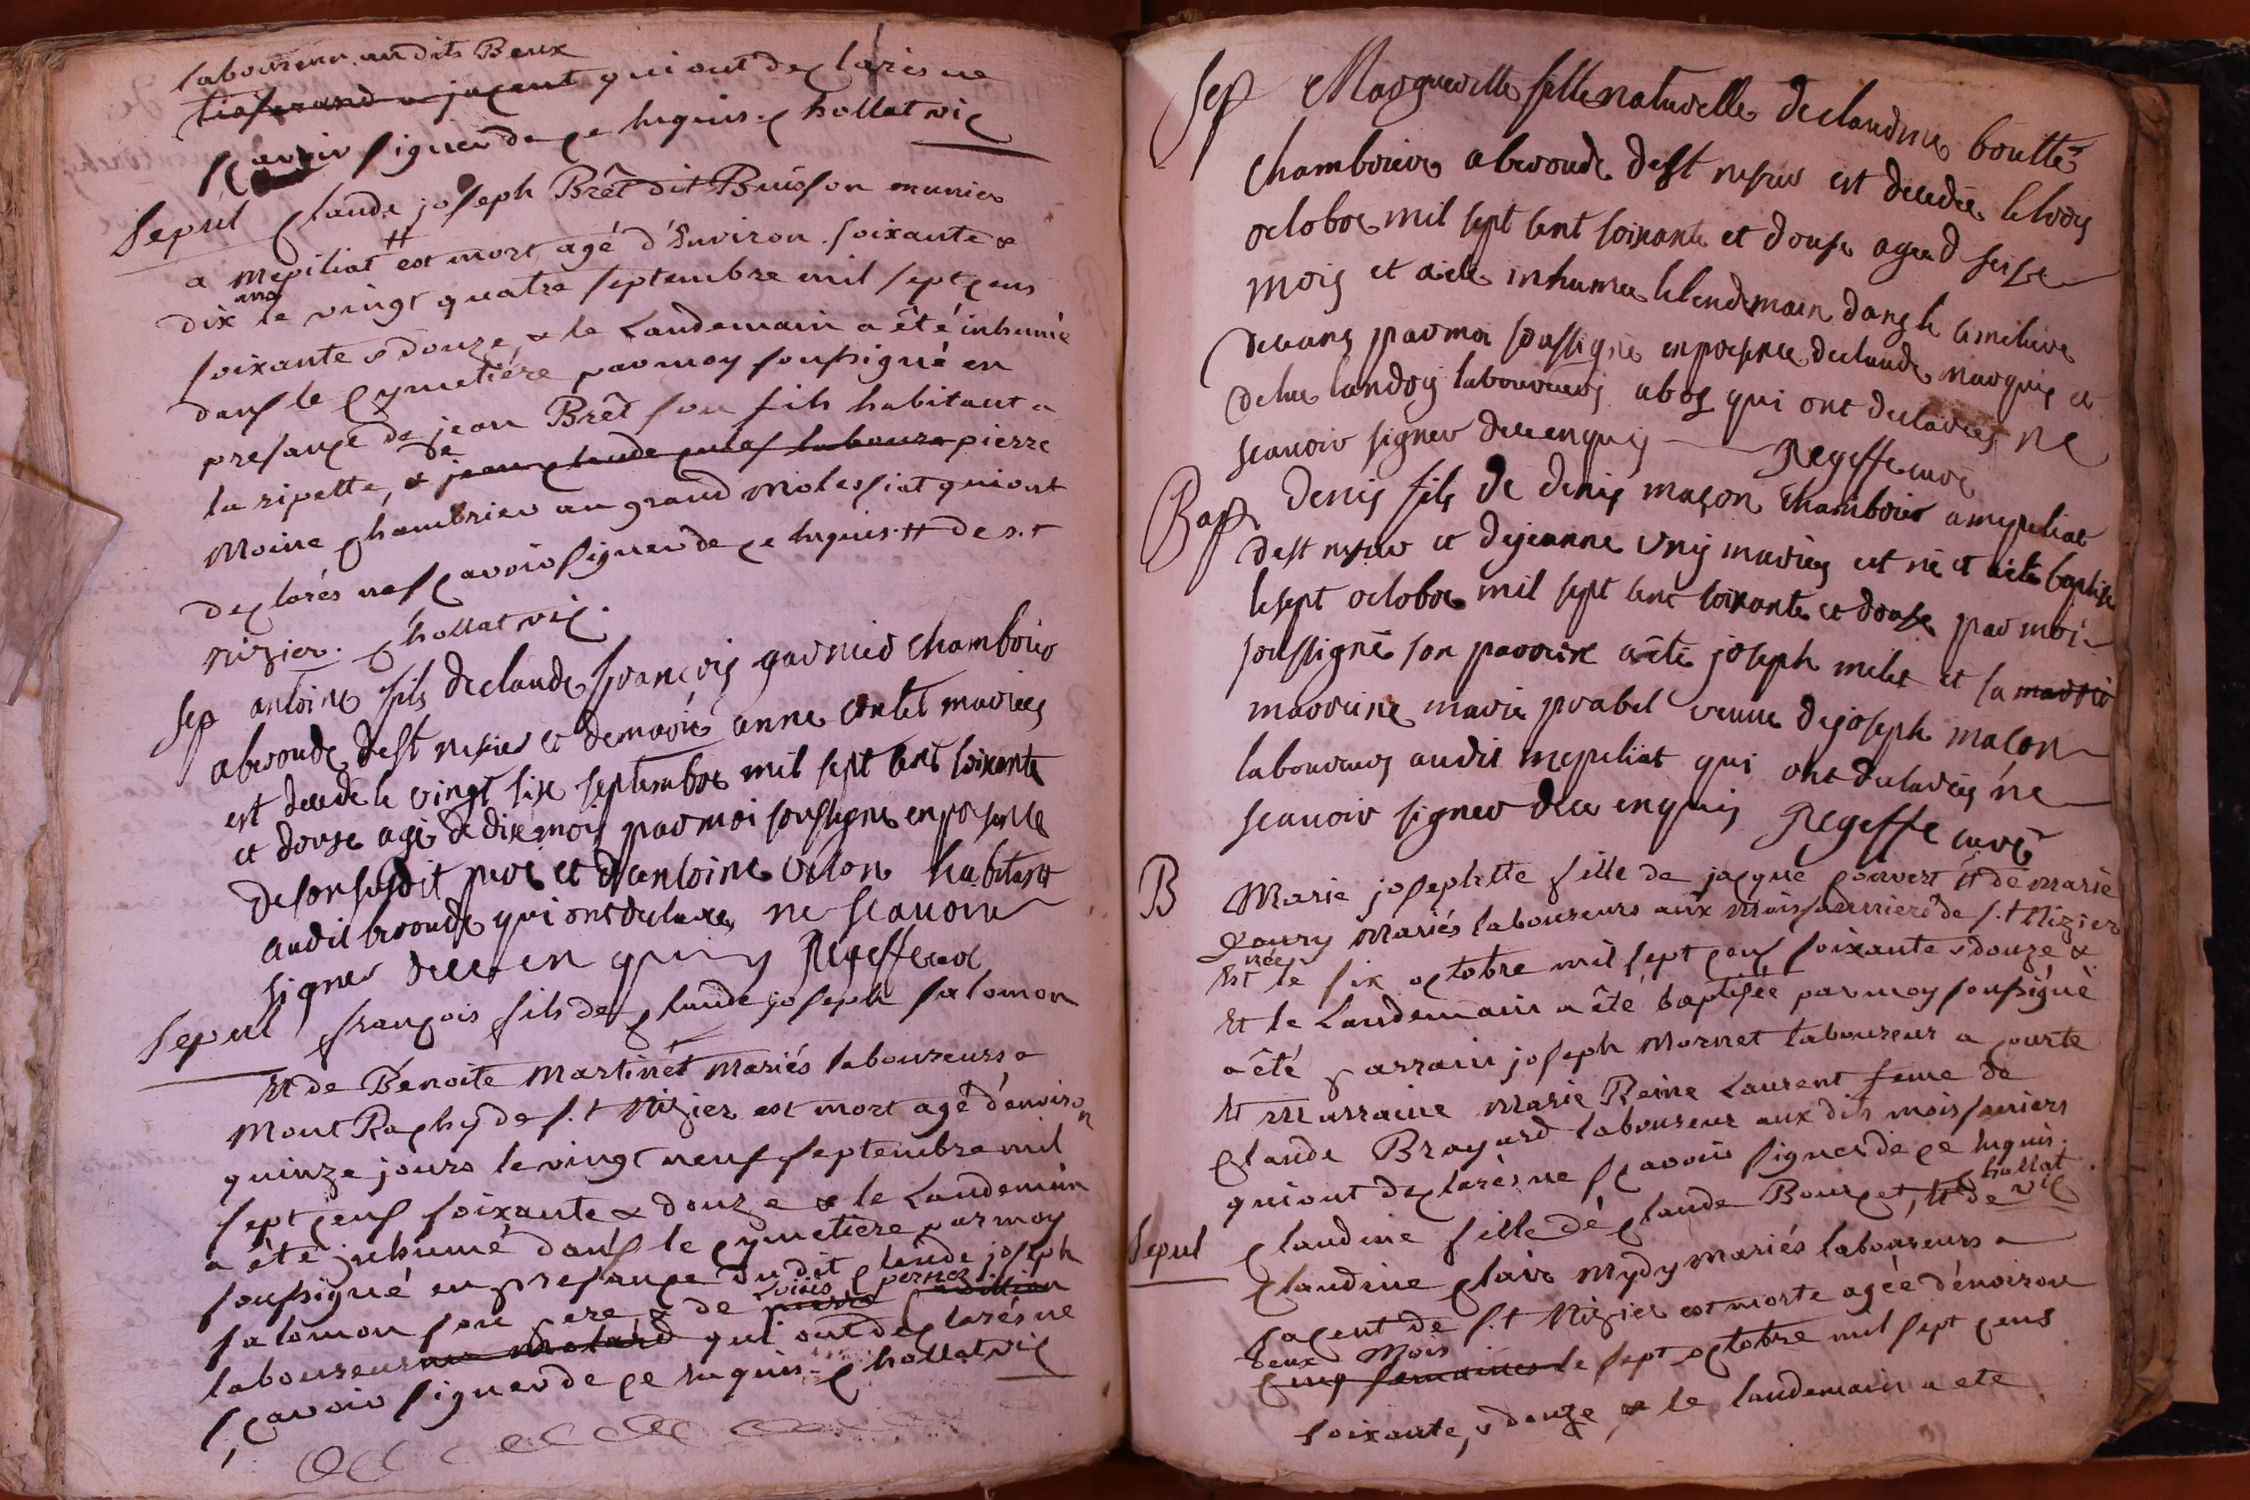 laboureur audits Beux
tisserand a jaçent qui ont declarés ne
sçavoir signer de ce Enquis. Chollat vic
Sepul Claude joseph Brêt dit Buisson munier
a Mepiliat # est mort agé d'Environ soixante &
dix ans le vingt quatre septembre mil sept cens
soixante & douze & le Landemain a été inhumé
dans le Cymetiére par moy soussigné en
presance de jean Brêt son fils habitant a
la ripette, & de jean claude laboure pierre
Moine Chambrier au grand Molessiat qui ont
declarés ne sçavoir signer de ce Enquis. # de s.t
nizier. Chollat vic.
Sep antoine fils de claude françois garnier chambrier
a bronde de st nisier et de marie anne contet mariés
est decedé le vingt six septembre mil sept cent soixante
et douse agé de dix mois par moi soussigné en presence
de son susdit pere et d'antoine vilon habitant
audit bronde qui ont declarés ne scauoir
signer de ce enquis Regeffe curé
Sepul françois fils de Claude joseph salomon
Et de Bénoite Martinét Mariés laboureurs a
Mont Rachy de s.t Nizier est mort agé d'énviron
quinze jours le vingt neuf septembre mil
sept cens soixante & douze & le Landemain
a été inhumé dans le Cymetiere par moy
soussigné en presance dudit Claude joseph
salomon son pere & de Loüis pernet
laboureur qui ont declarés ne
sçavoir signer de ce Enquis. Chollat vic
Sep Margueritte fille naturelle de claudine bouttet
chambriere a bronde de st nisier est decedée le trois
octobre mil sept cent soixante et douse agee d seise
mois et a ete inhumee le lendemain dans le cimetiere
deceans par moi soussigné en presence de claude marguis et
de luc landoy laboureurs a bos qui ont declarés ne
scauoir signer de ce enquis Regeffe curé
Bap Denis fils de denis maçon chambrier a mepeliat
de st nisier et de jeanne vris mariés est né et a ete baptisé
le sept octobre mil sept cent soixante et douse par moi
soussigné son parrain a ete joseph milet et sa marrie
marreine marie prabel veuue de joseph macon
laboureurs audit mepeliat qui ont declarés ne
scauoir signer de ce enquis Regeffe curé
B Marie josephtte fille de jacque Convert Et de Marie
Goury Mariés laboureurs aux Moissonniers de s.t Nizier
Est née le six octobre mil sept cens soixante & douze &
Et le Landemain a été baptisée par moy soussigné
a été parrain joseph Mornet laboureur a Courte
Et Marraine Marie Reine Laurent feme de
Claude Brayard laboureur aux dits moissoniers
qui ont declarés ne sçavoir signer de ce Enquis.
Chollat vic
Sepul Claudine fille dé Claude Bourcet, Et de
Claudine Clair Mydy Mariés laboureurs a
jaçent de s.t Nizier est morte agée d'énviron
deux Mois
Cinq semaines le sept octobre mil sept cens
soixante, & douze & le landemain a ete